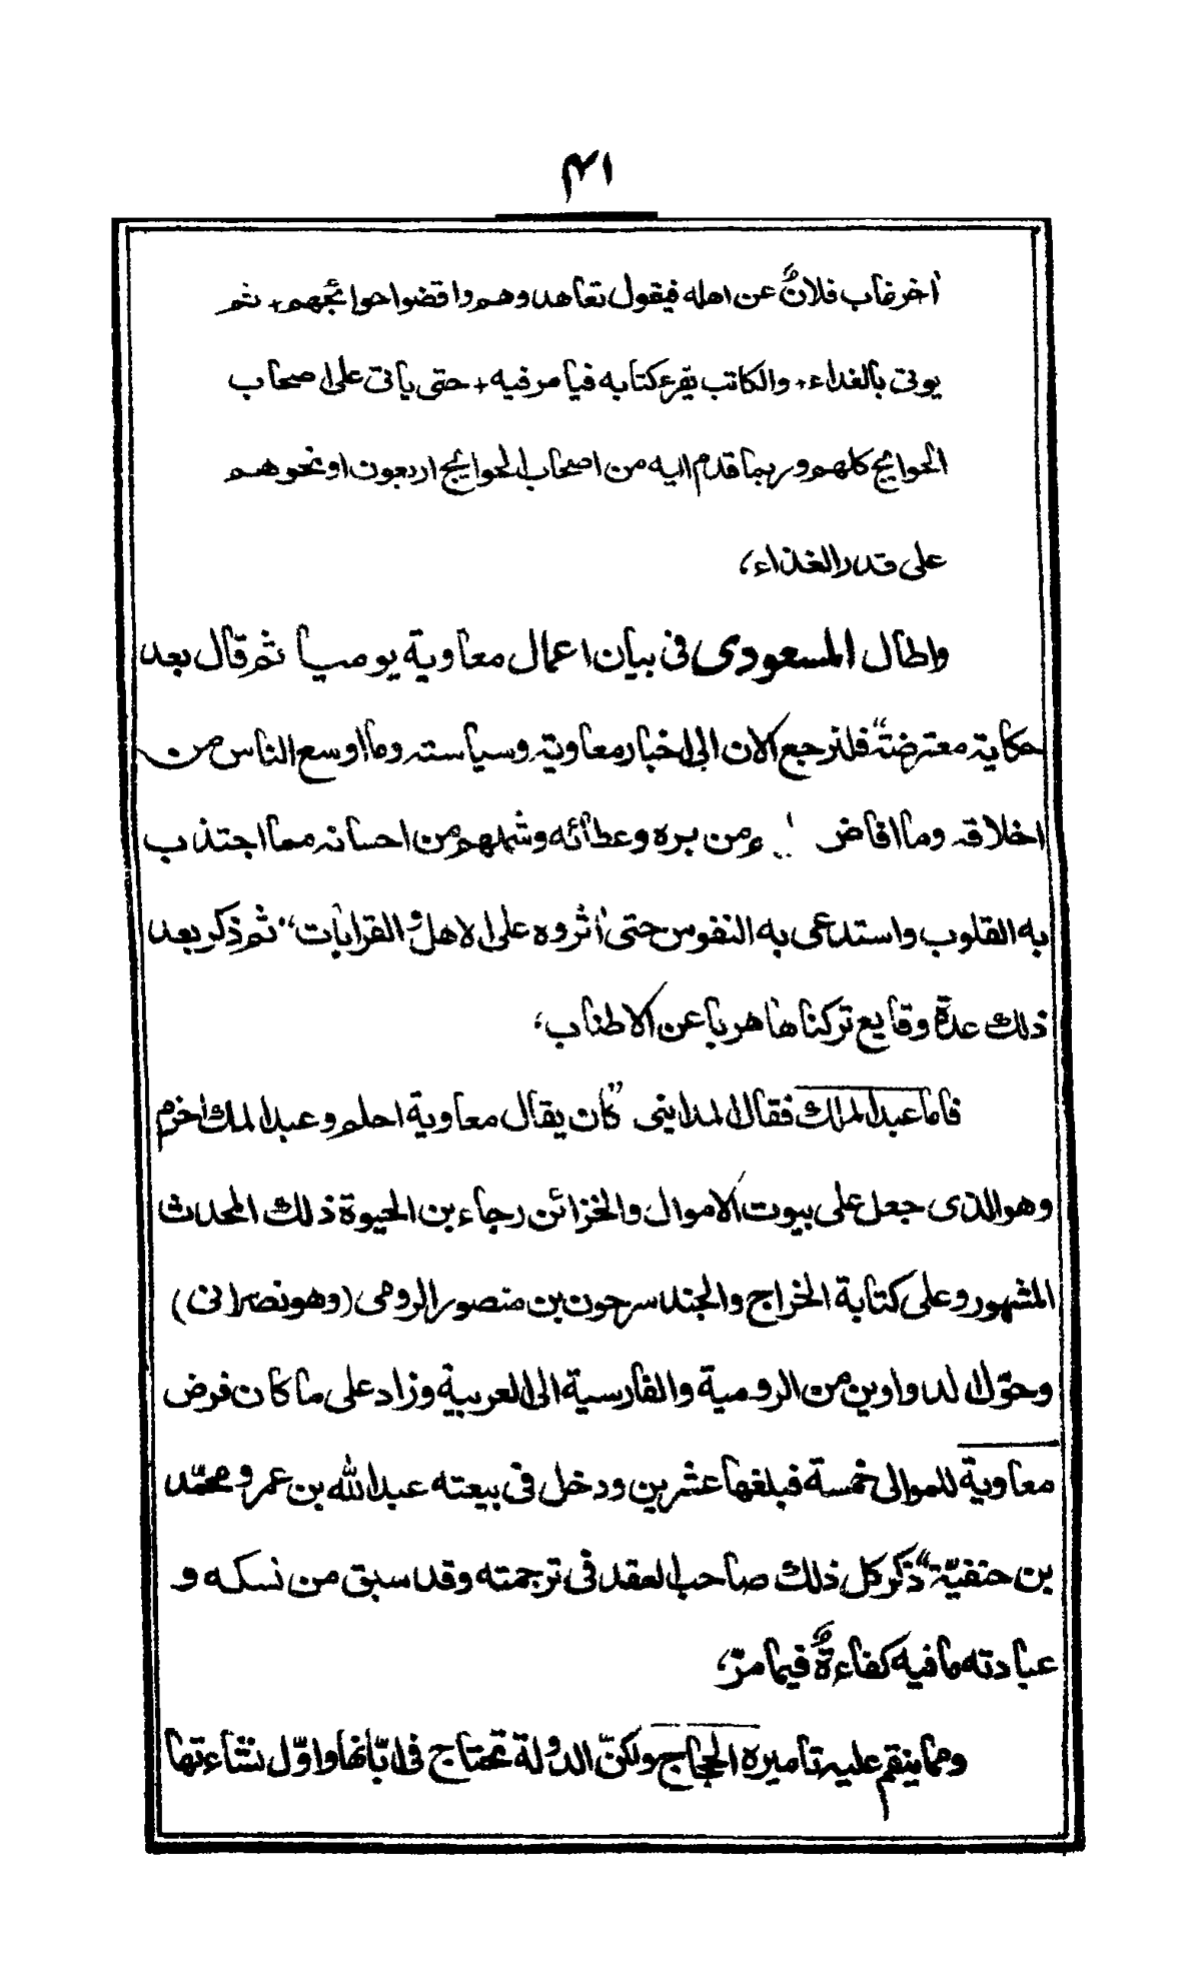 ۴۱
أخر غاب فلانٌ عن اهله فيقول تعاهدوهم واقضوا حوائجهم + ثم
يوتى بالغداء + والكاتب يقرء كتابه فيامر فيه + حتى يأتى على اصحاب
الحوايج كلهم وربما قدم اليه من اصحاب الحوايج اربعون او نحوهم
على قدر الغذاء،
واطال المسعودى فى بيان اعمال معاوية يوميا ثم قال بعد
حكاية معترضة "فلنرجع الان الى اخبار معاوية وسياسته وما اوسع الناس من
اخلاقه وما افاض من بره وعطائه وشملهم من احسانه مما اجتذب
به القلوب واستدعى به النفوس حتى أثروه على الاهل والقرابات" ثم ذكر بعد
ذلك عدة وقايع تركناها هربا عن الاطناب،
فاما عبد الملك فقال المداينى "كان يقال معاوية احلم وعبد الملك أخزم
وهو الذى جعل على بيوت الاموال والخزائن رجاء بن الحيوة ذلك المحدث
المشهور وعلى كتابة الخراج والجند سرجون بن منصور الرومى (وهو نصرانى)
وحوّل الدواوين من الرومية والفارسية الى العربية وزاد على ما كان فرض
معاوية للموالى خمسة فبلغها عشرين ودخل فى بيعته عبد الله بن عمر ومحمّد
بن حنفيّة" ذكر كل ذلك صاحب العقد فى ترجمته وقد سبق من نسكه و
عبادته ما فيه كفاءةٌ فيما مرّ،
ومما ينقم عليه تاميره الحجاج ولكنّ الدولة تحتاج فى ابّانها واوّل نشاءتها